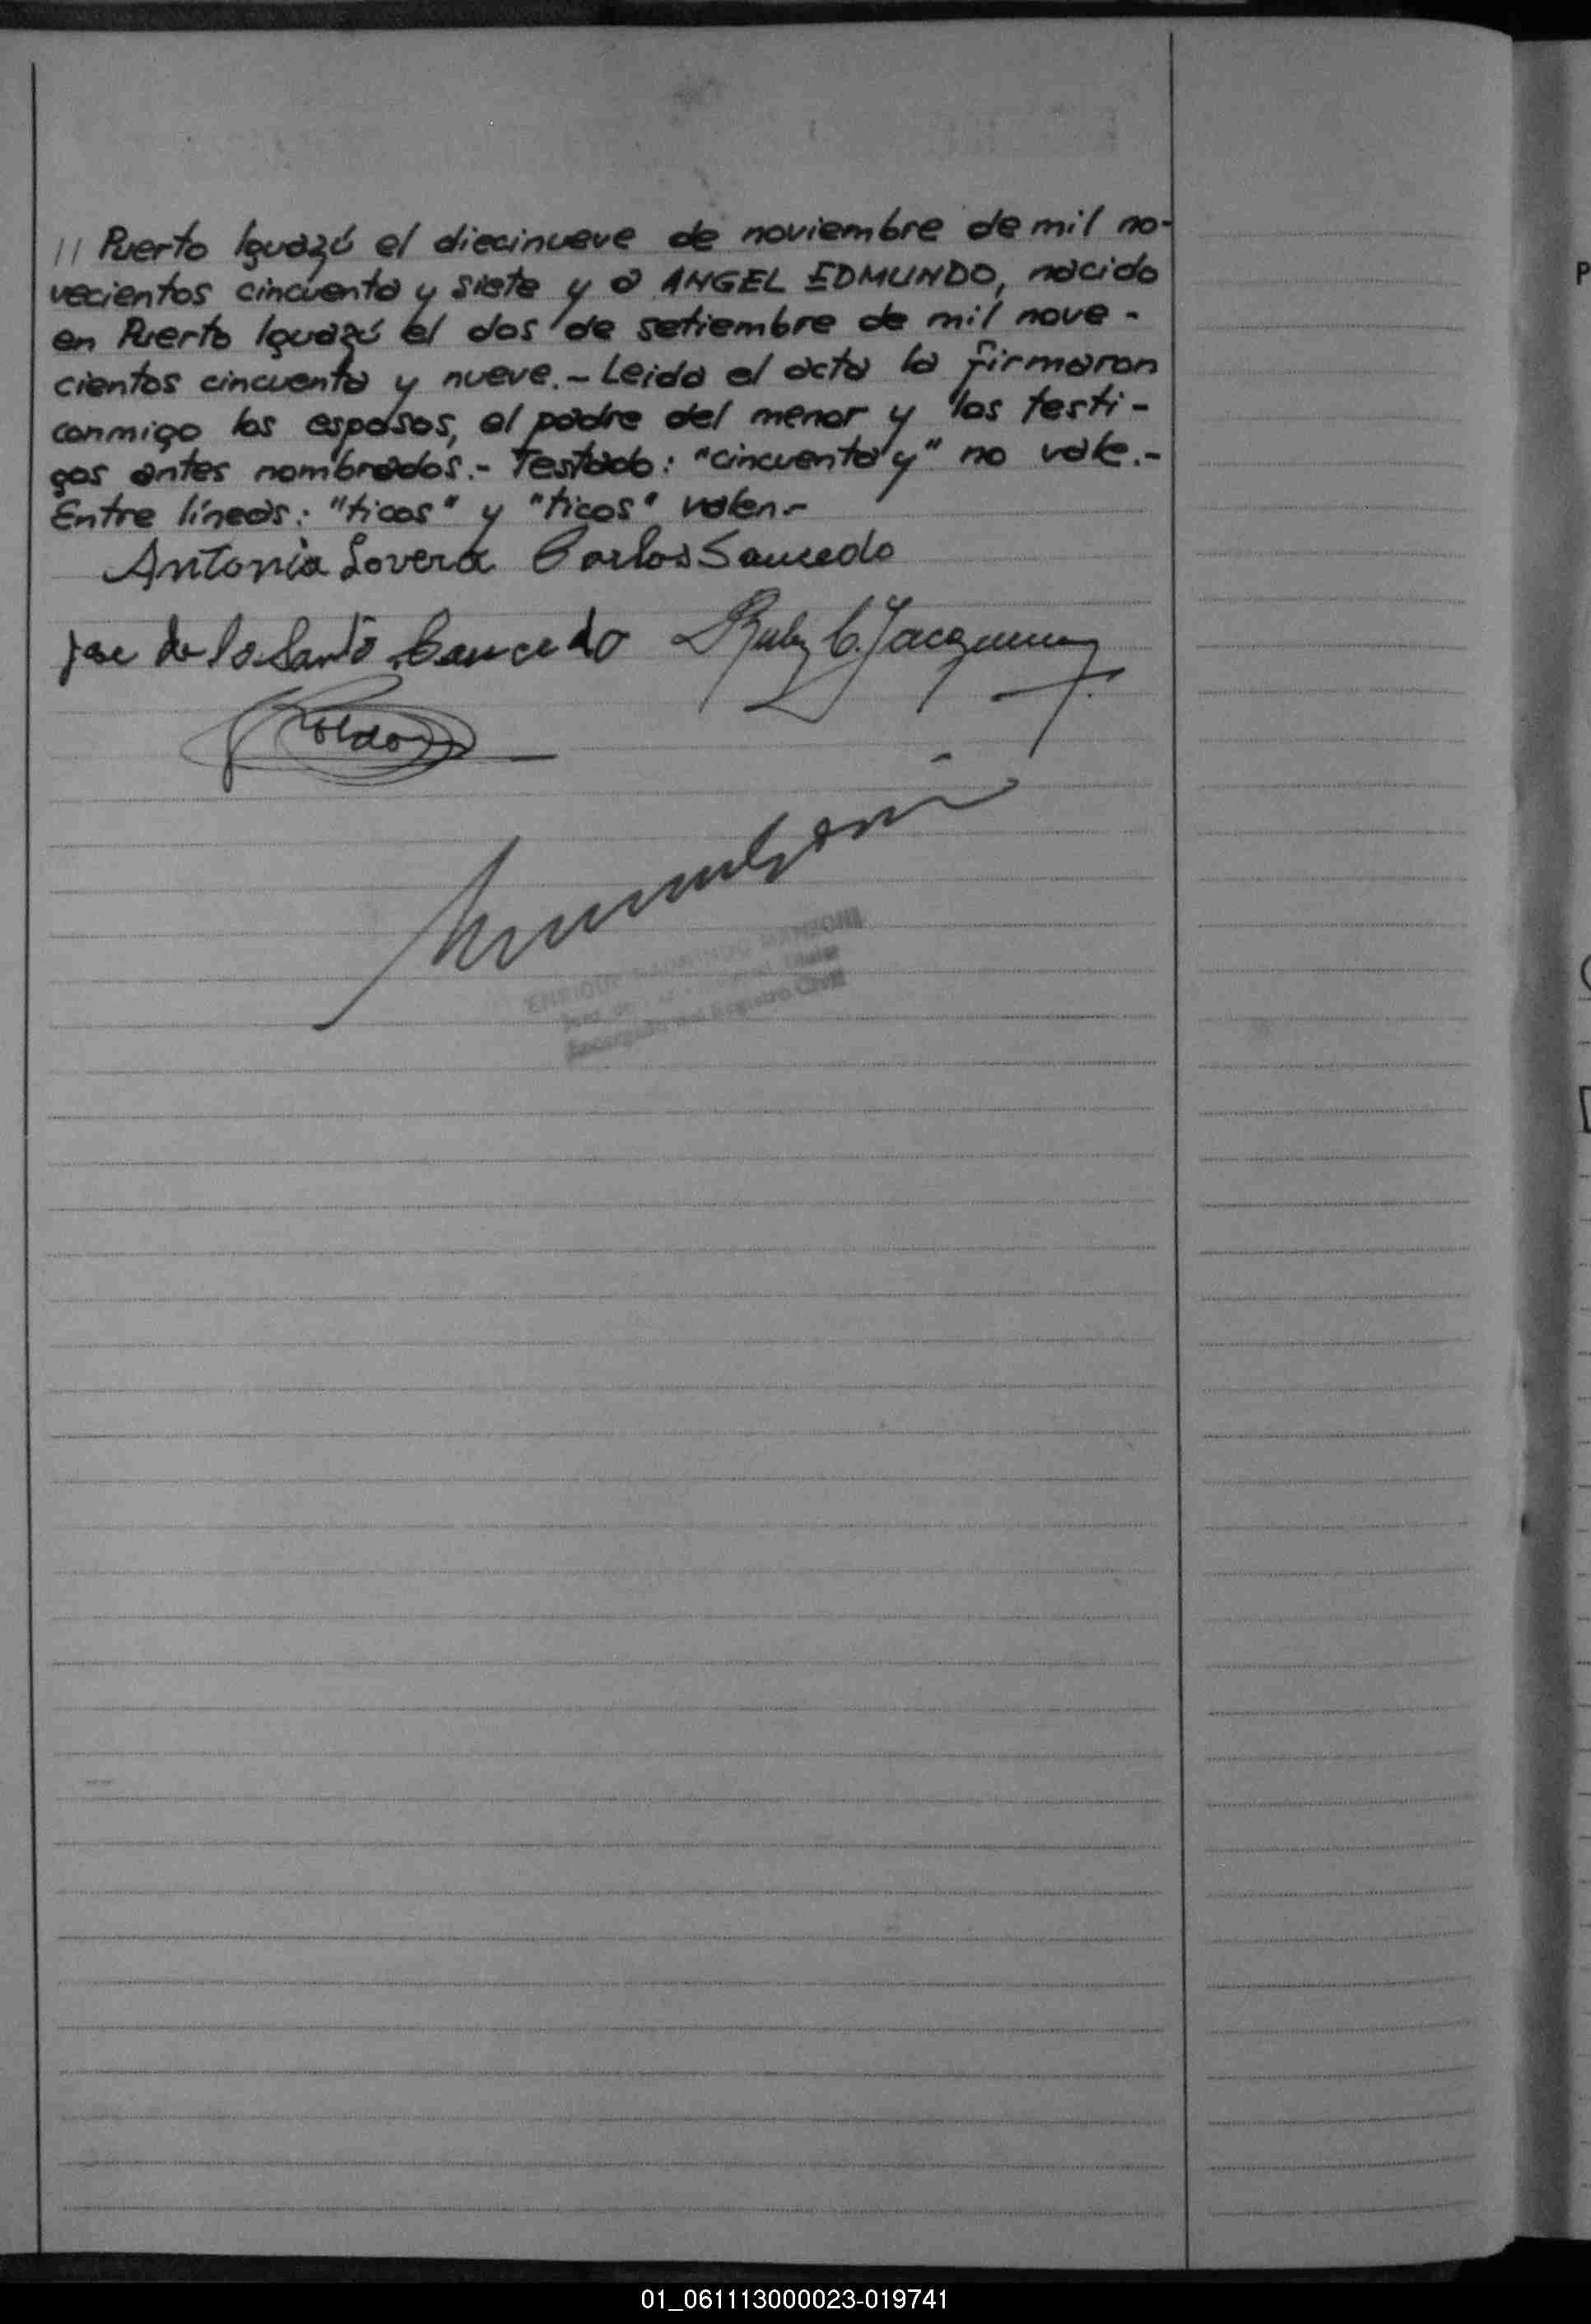 // Puerto Iguazú el diecinueve de noviembre de mil no-
vecientos cincuenta y siete y a ANGEL EDMUNDO, nacido
en Puerto Iguazú el dos de setiembre de mil nove-
cientos cincuenta y nueve.- Leida el acta la firmaron
conmigo los esposos, el padre del menor y los testi-
gos antes nombrados.- Testado: "cincuenta y" no vale.-
Entre líneas: "ticos" y "ticos" valen.-
Antonia Lovera Carlos Saucedo
Jose de la Santo Saucedo Ruby C.
Roldan
ENRIQUE MANZONI
Juez de Titular
Encargado del Registro Civil
01_061113000023-019741